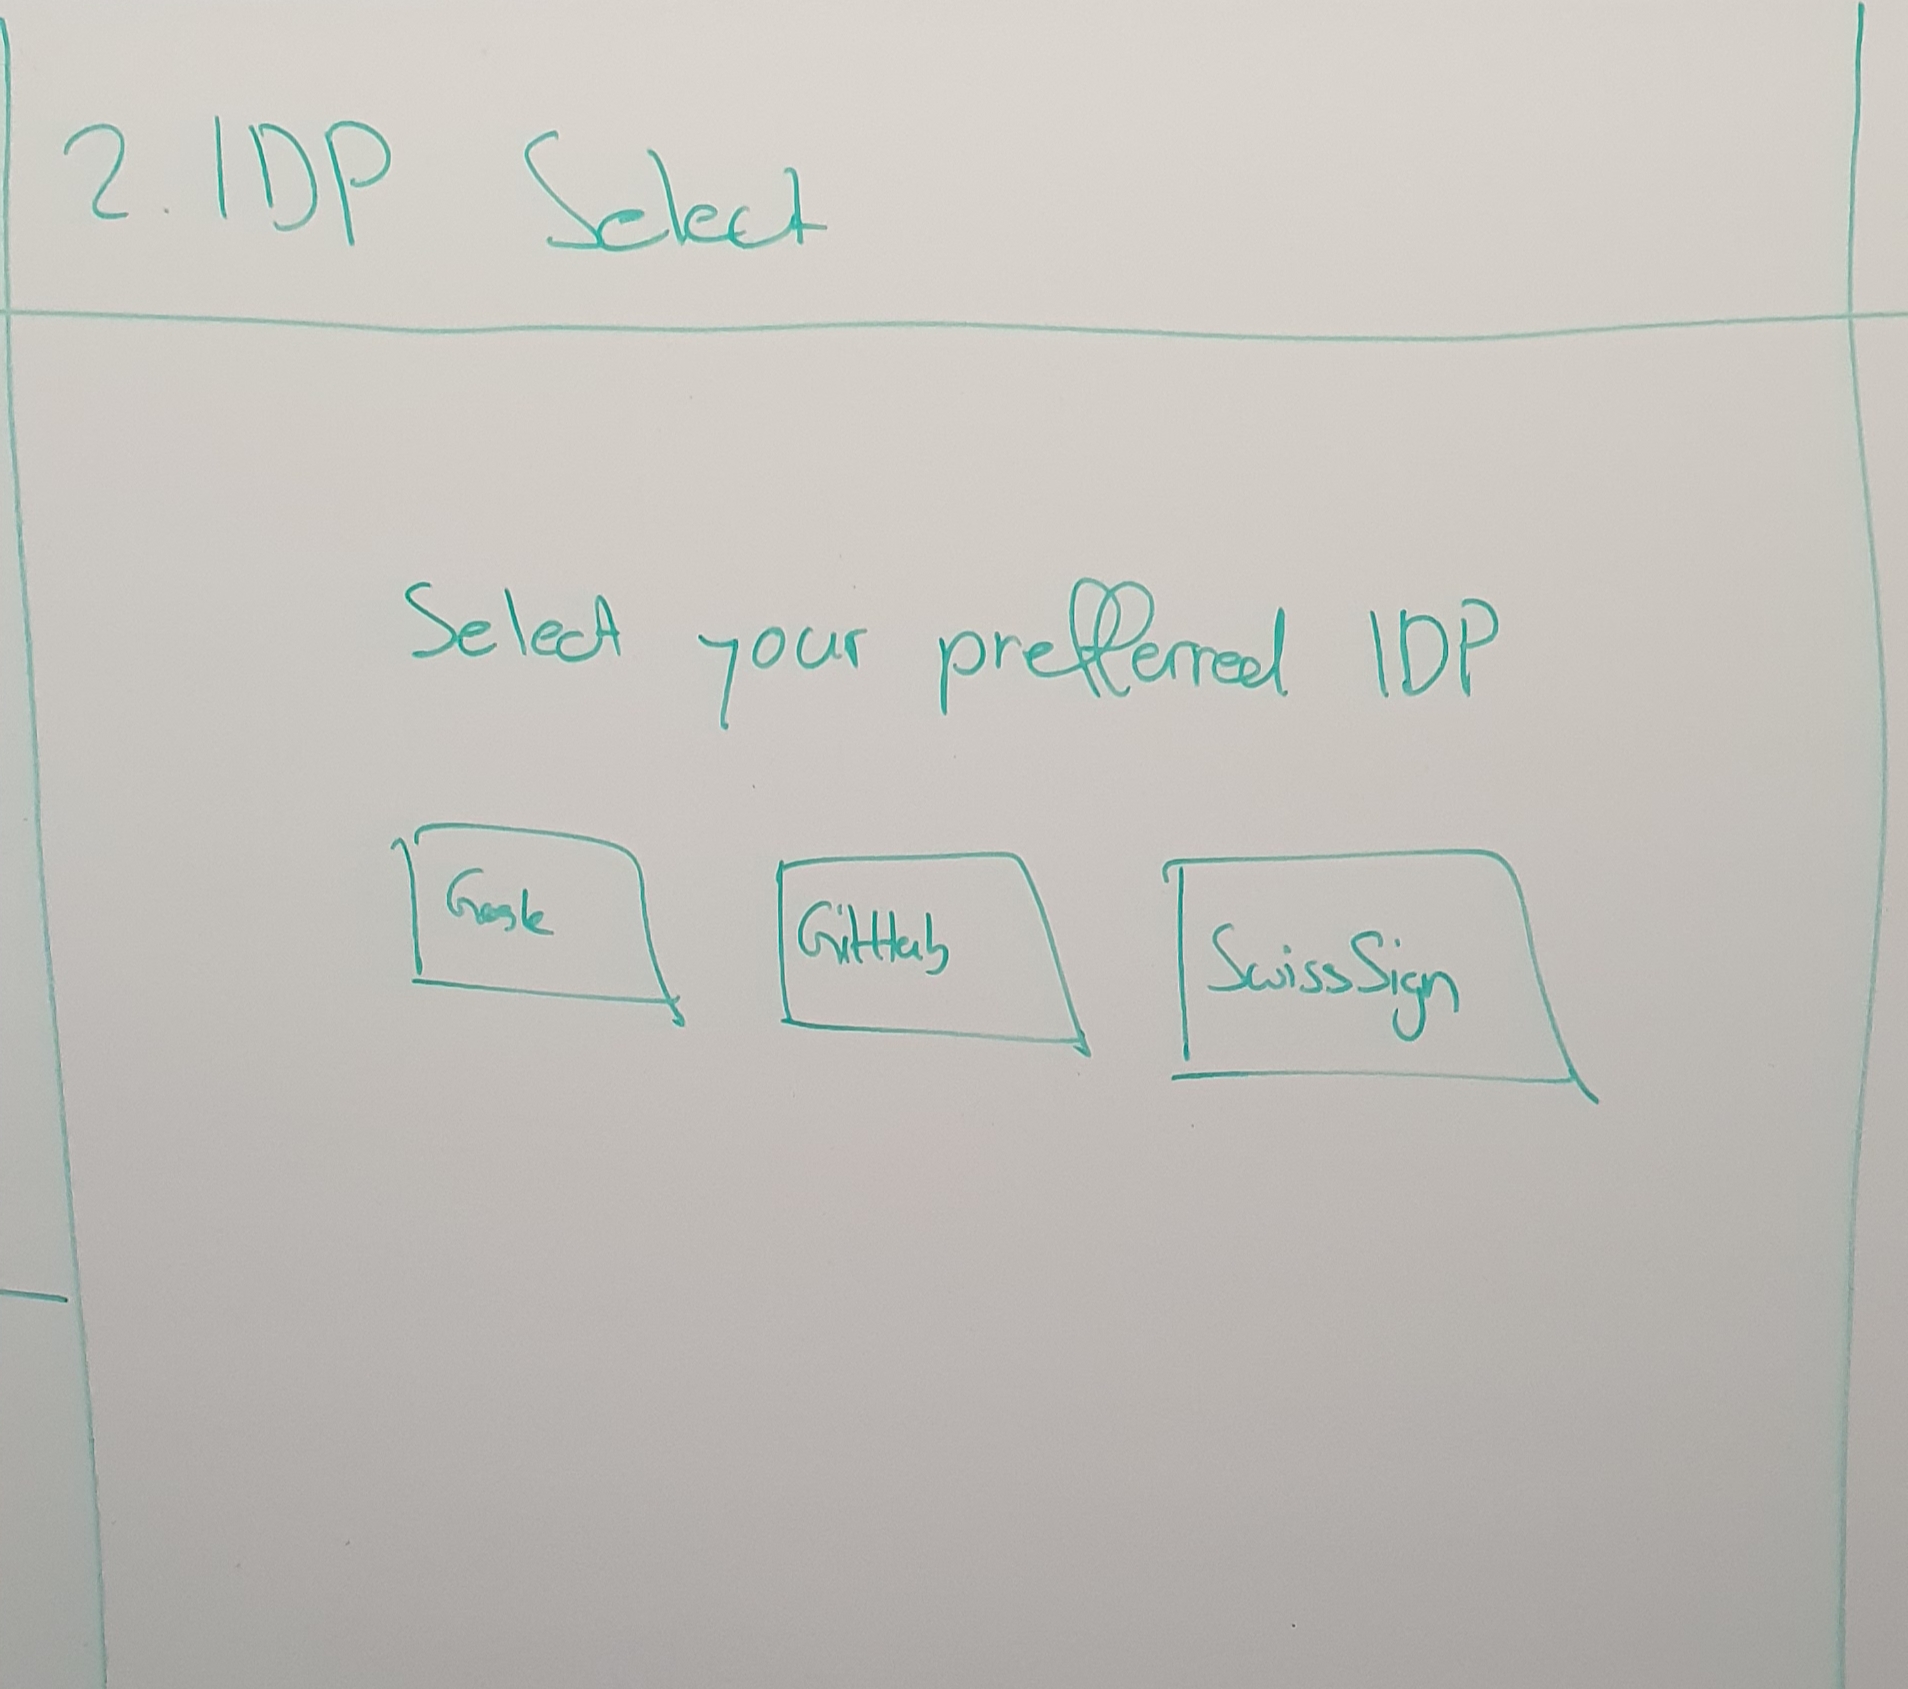 2. IDP Select
Select your prefferred IDP
Google
GitHub
SwissSign